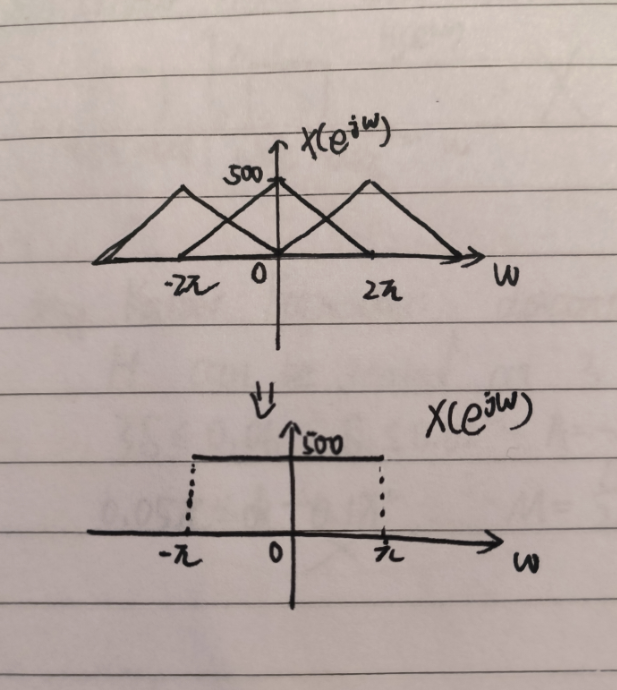 X(e^jω)
500
-2π 0 2π ω
⇓
X(e^jω)
500
-π 0 π ω